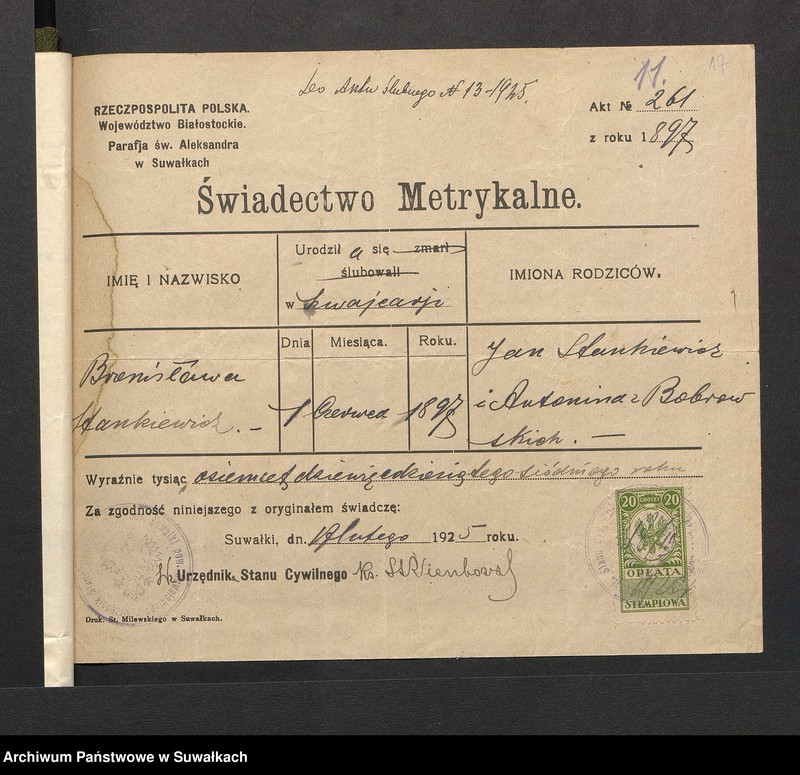 Do Aktu ślubnego № 13-1925.
11.
17
RZECZPOSPOLITA POLSKA.
Województwo Białostockie.
Parafja św. Aleksandra
w Suwałkach
Akt № 261
z roku 1897
Świadectwo Metrykalne.
IMIĘ I NAZWISKO
Urodził a się zmarł
ślubowali
w Szwajcarji
IMIONA RODZICÓW.
Dnia Miesiąca. Roku.
Bronisława
Stankiewicz. —
1 Czerwca 1897
Jan Stankiewicz
i Antonina z Bobrow
skich. —
Wyraźnie tysiąc osiemset dziewięćdziesiątego siódmego roku
Za zgodność niniejszego z oryginałem świadczę:
Suwałki, dn. lutego 1925 roku.
Urzędnik Stanu Cywilnego Ks.
Druk. St. Milewskiego w Suwałkach.
20 GROSZY 20
OPŁATA
STEMPLOWA
Archiwum Państwowe w Suwałkach